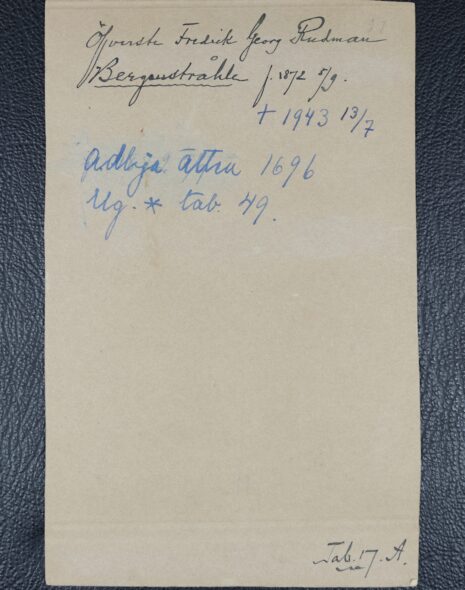 Öfverste Fredrik Georg Rudman
Bergenstråhle f. 1872 5/9.
† 1943 13/7
Adliga ätten 1696
Ug. * tab. 49.
Tab. 17. A.